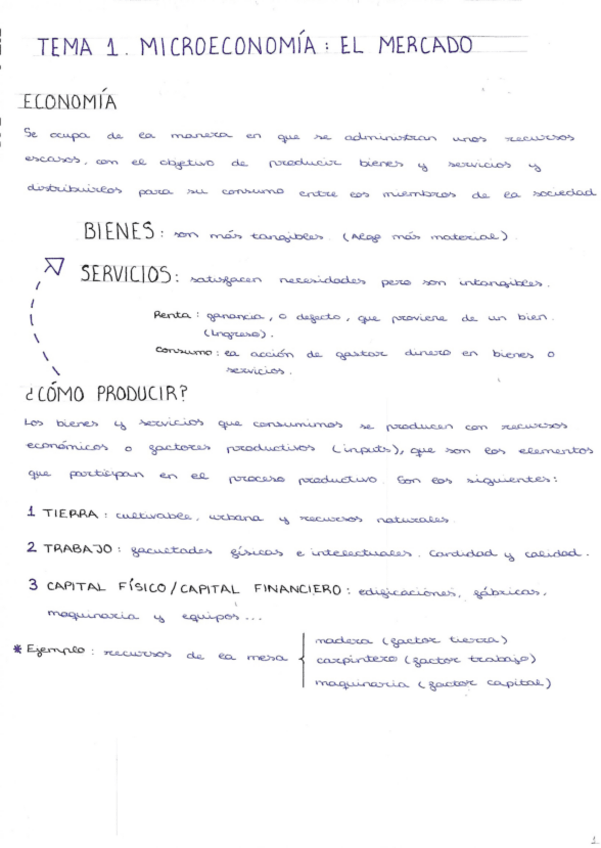 TEMA 1. MICROECONOMÍA: EL MERCADO
ECONOMÍA
Se ocupa de la manera en que se administran unos recursos
escasos, con el objetivo de producir bienes y servicios y
distribuirlos para su consumo entre los miembros de la sociedad
BIENES: son más tangibles. (Algo más material).
SERVICIOS: satisfacen necesidades pero son intangibles.
Renta: ganancia, o defecto, que proviene de un bien.
(Ingreso).
Consumo: la acción de gastar dinero en bienes o
servicios.
¿CÓMO PRODUCIR?
Los bienes y servicios que consumimos se producen con recursos
económicos o factores productivos (inputs), que son los elementos
que participan en el proceso productivo. Son los siguientes:
1 TIERRA: cultivable, urbana y recursos naturales.
2 TRABAJO: facultades físicas e intelectuales. Cantidad y calidad.
3 CAPITAL FÍSICO/CAPITAL FINANCIERO: edificaciones, fábricas,
maquinaria y equipos...
* Ejemplo: recursos de la mesa
madera (factor tierra)
carpintero (factor trabajo)
maquinaria (factor capital)
1